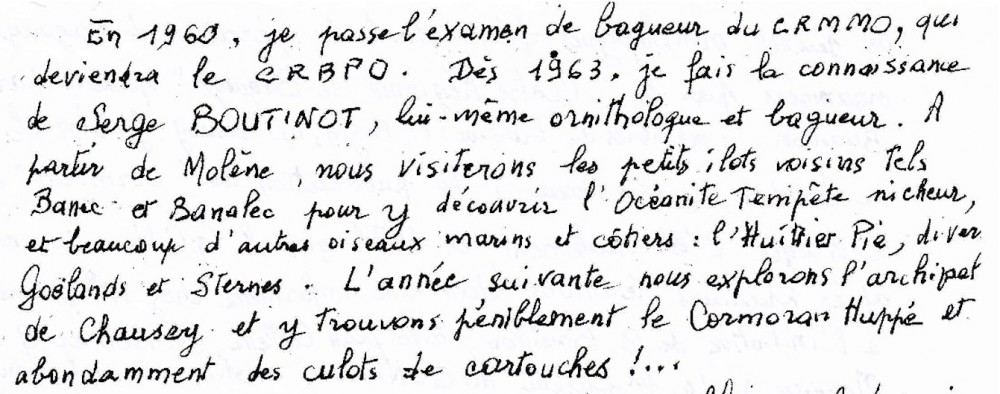 En 1960, je passe l'éxamen de bagueur du CRMMO, qui
deviendra le CRBPO. Dès 1963, je fais la connaissance
de Serge BOUTINOT, lui-même ornithologue et bagueur. A
partir de Molène, nous visiterons les petits ilots voisins Tels
Banec et Banalec pour y découvrir l'Océanite Tempête nicheur,
et beaucoup d'autres oiseaux marins et côtiers : l'Huîtrier Pie, diver
Goëlands et Sternes. L'année suivante nous explorons l'archipel
de Chausey et y Trouvons péniblement le Cormoran Huppé et
abondamment des culots de cartouches !...